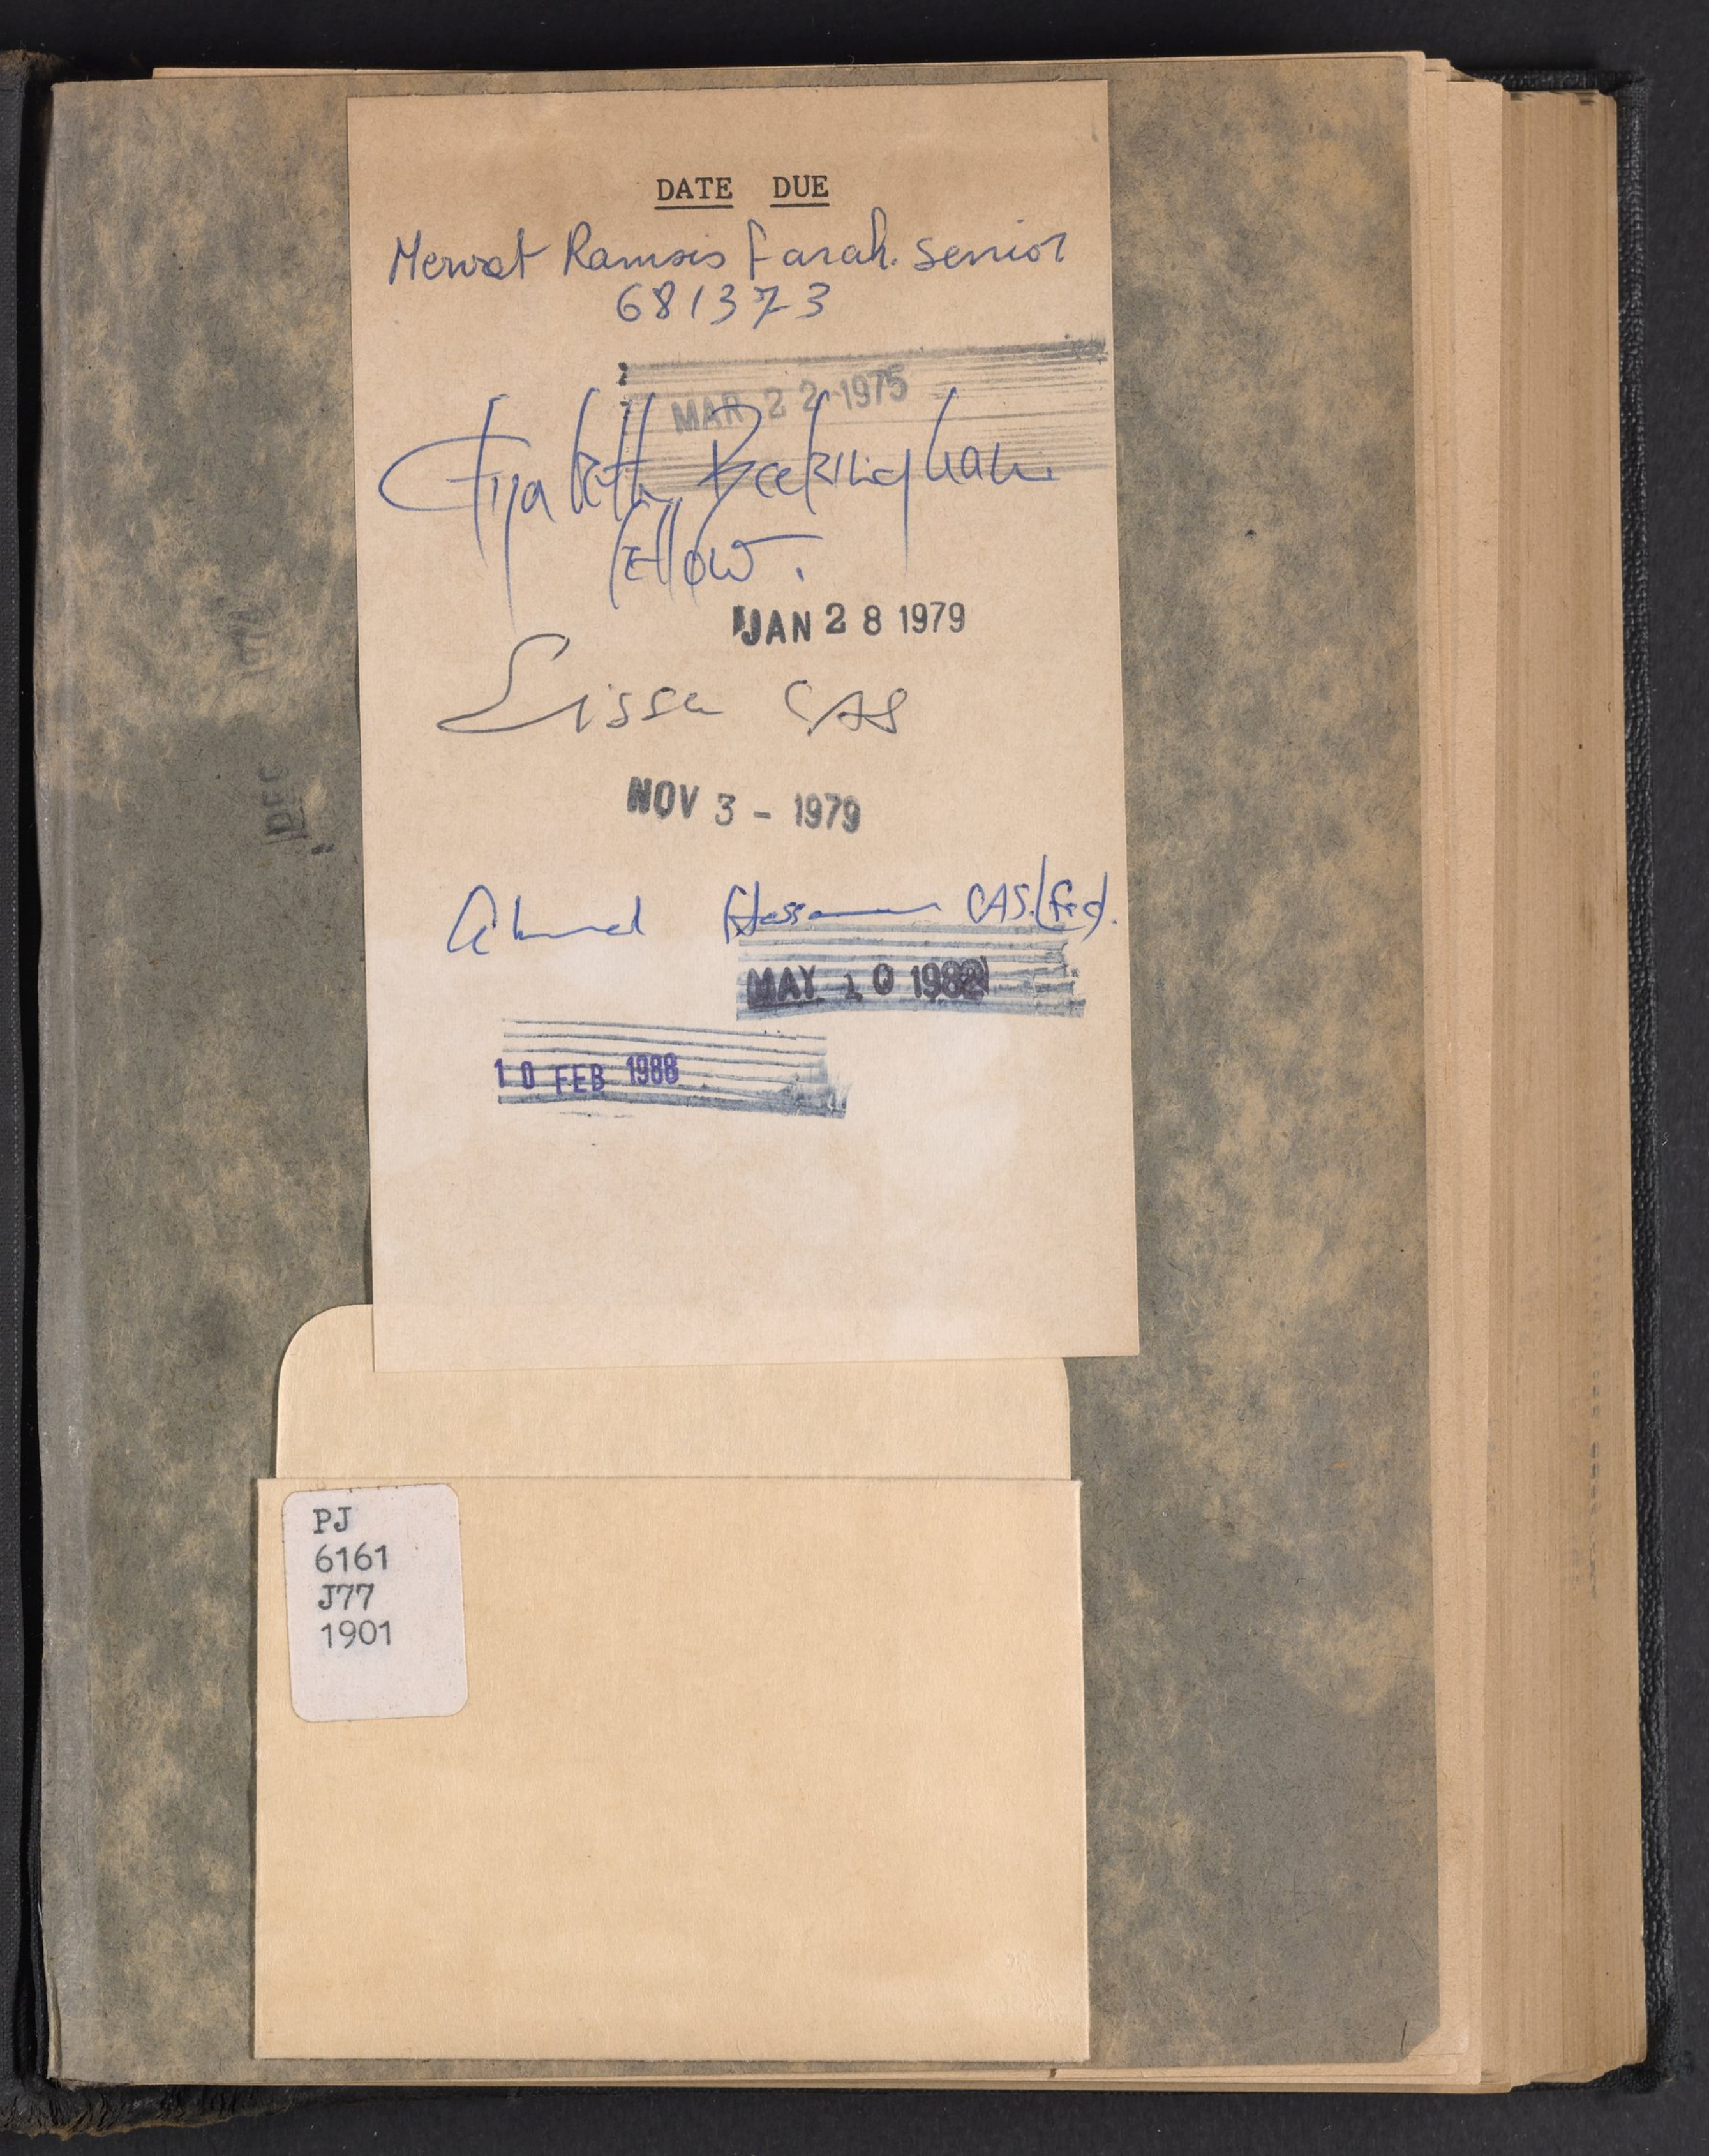 DATE DUE
Mervat Ramsis Farah. Senior
681373
MAR 22 1975
Elizabeth
Fellow.
JAN 28 1979
Eissa CAS
NOV 3 - 1979
Ahmed Hassan CAS.
MAY 10 1982
10 FEB 1988
PJ
6161
J77
1901